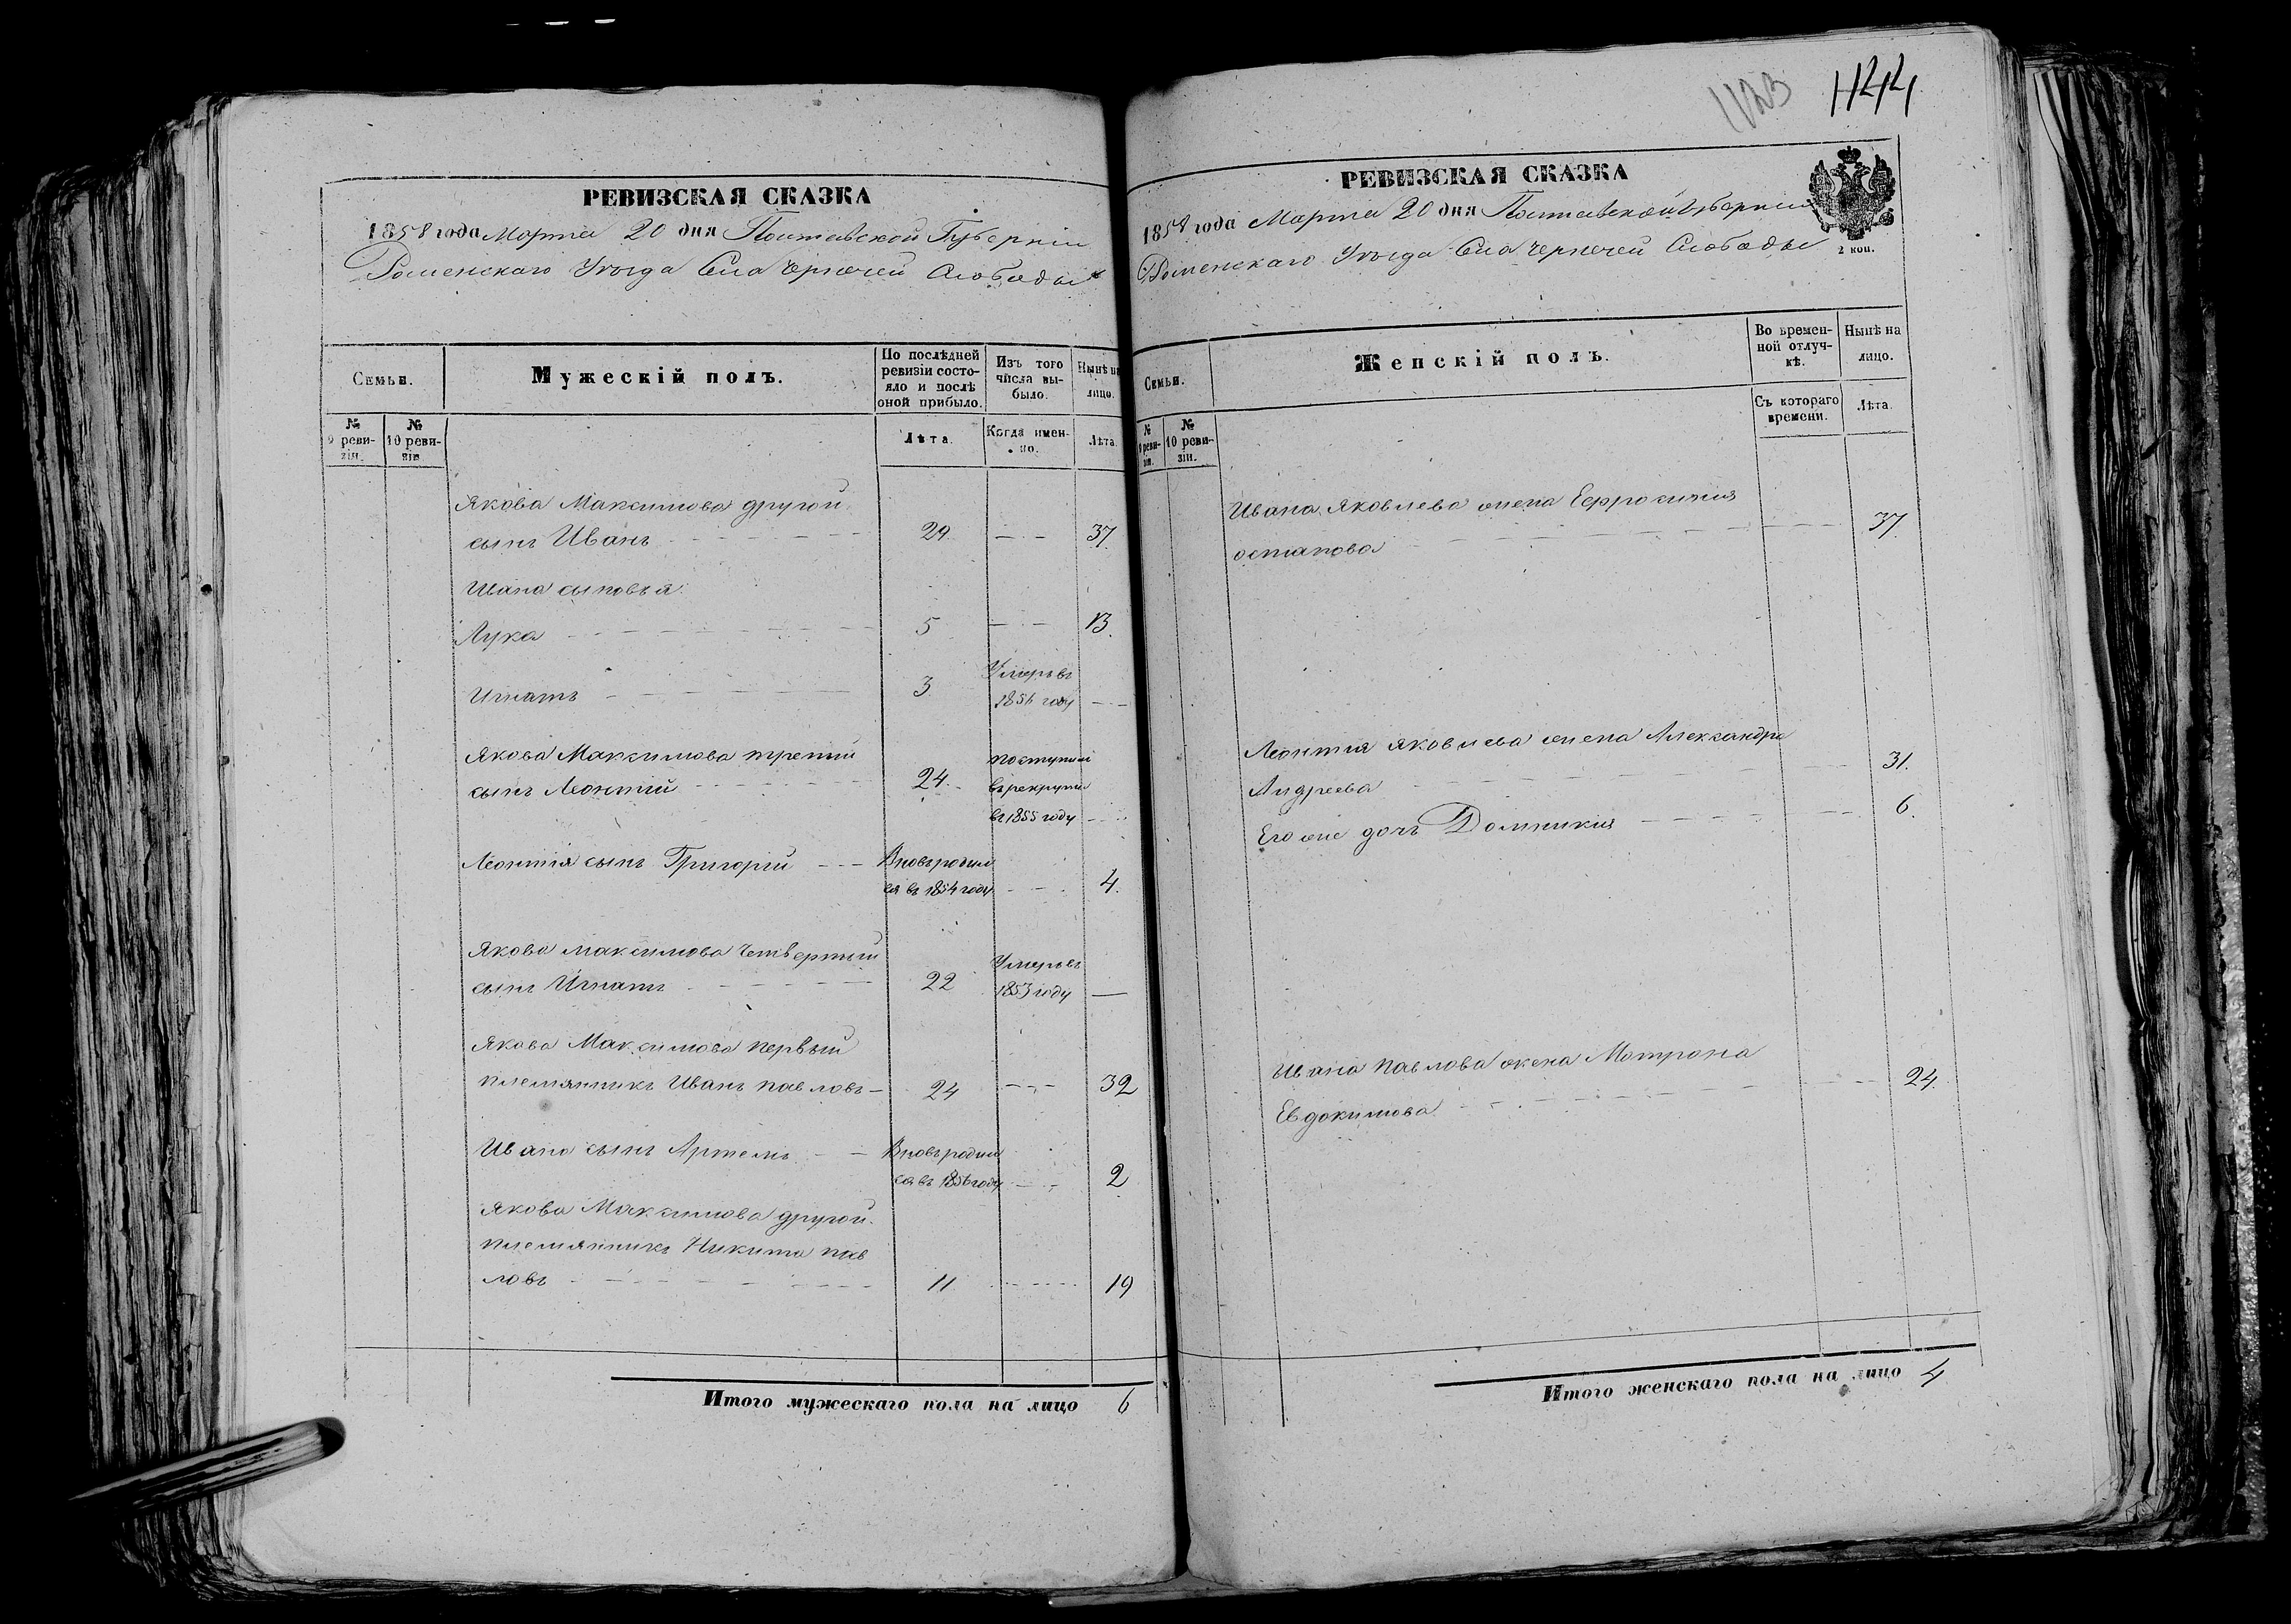 1123 1144
РЕВИЗСКАЯ СКАЗКА
1858 года Марта 20 дня Полтавской Губерніи
Роменскаго Уѣзда Села Чернечей Слободы
Семьи.
Мужескій полъ.
По послѣдней
ревизіи состо-
яло и послѣ
оной прибыло.
Изъ того
числа вы-
было.
Нынѣ на
лицо.
№
9 реви-
зіи.
№
10 реви-
зіи.
Лѣта.
Когда имен-
но.
Лѣта.
Якова Максимова другой
сынъ Иванъ 29 37.
Ивана сыновья:
Лука 5 13.
Игнатъ 3 Умеръ въ
1856 году
Якова Максимова третій
сынъ Леонтій 24. поступил
въ рекруты
въ 1855 году
Леонтія сынъ Григорій Вновь родил
ся въ 1854 году 4.
Якова Максимова четвертый
сынъ Игнатъ 22 Умеръ въ
1853 году
Якова Максимова первый
племянникъ Иванъ Павловъ 24 32
Ивана сынъ Артемъ Вновь родил
ся въ 1856 году 2
Якова Максимова другой
племянникъ Никита Пав
ловъ 11 19
Итого мужескаго пола на лицо 6
РЕВИЗСКАЯ СКАЗКА
1858 года Марта 20 дня Полтавской Губерніи
Роменскаго Уѣзда Села Чернечей Слободы
2 коп.
Семьи.
Женскій полъ.
Во времен-
ной отлуч-
кѣ.
Нынѣ на
лицо.
№
9 реви-
зіи.
№
10 реви-
зіи.
Съ котораго
времени.
Лѣта.
Ивана Яковлева жена Ефросинія
Остапова 37.
Леонтія Яковлева жена Александра
Андреева 31.
Его же дочь Домникия 6.
Ивана Павлова жена Матрона
Евдокимова 24.
Итого женскаго пола на лицо 4